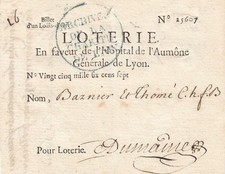 Billet
d'un Louis
N° 25607
ARCHIVES
LOTERIE.
En faveur de l'Hôpital de l'Aumône
Générale de Lyon.
N° Vingt cinq mille six cens sept
Nom, Baznier et Thomé
Pour Loterie. Dumaine